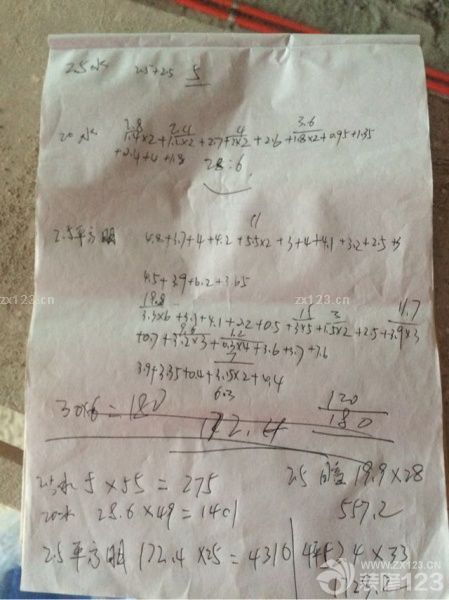 25水 2.5+2.5 5
2.8 2.4 4 3.6
20水 1.4×2+1.2×2+2.7+2×2+2.6+1.8×2+0.95+1.35
+2.4+4+1.8
28.6
11
2.5平方明 4.8+3.7+4+4.2+5.5×2+3+4+4.1+3.2+2.5+3
4.5+3.9+6.2+3.65
19.8 15 3 11.7
3.3×6+3.9+4.1+2.2+0.5+3×5+1.5×2+2.5+3.9×3
9.6 1.2
+0.7+3.2×3+0.3×4+3.6+3.7+7.6
3.9+3.35+0.4+3.15×2+4.4
6.3
30×6=180 120
172.4 180
25水 5×55=275 2.5 19.9×28
20水 28.6×49=1401 557.2
2.5平方明 172.4×25=4310 4平 52.4×33
zx123.cn
zx123.cn
zx123.cn
zx123.cn
www.zx123.cn
装修123